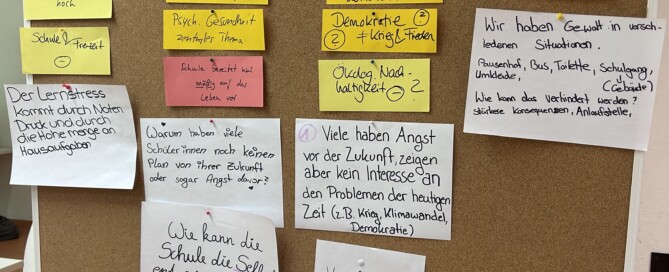 hoch
Schule & Freizeit
Der Lernstress
kommt durch Noten
Druck und durch
die Hohe menge an
Hausaufgaben
Psych. Gesundheit
zentrales Thema
Schule bereitet nur
mäßig auf das
Leben vor
Warum haben viele
Schüler:innen noch keinen
Plan von ihrer Zukunft
oder sogar Angst davor?
Wie kann die
Schule die
Demokratie ?
? ≠ Krieg & Frieden
Ökolog. Nach-
haltigkeit ?
1 Viele haben Angst
vor der Zukunft, zeigen
aber kein Interesse an
den Problemen der heutigen
Zeit (z.B. Krieg, Klimawandel,
Demokratie)
Wir haben Gewalt in versch-
iedenen Situationen.
Pausenhof, Bus, Toilette, Schulgang,
Umkleide, (Gebäude)
Wie kann das verhindert werden?
stärkere Konsequenzen, Anlaufstelle,